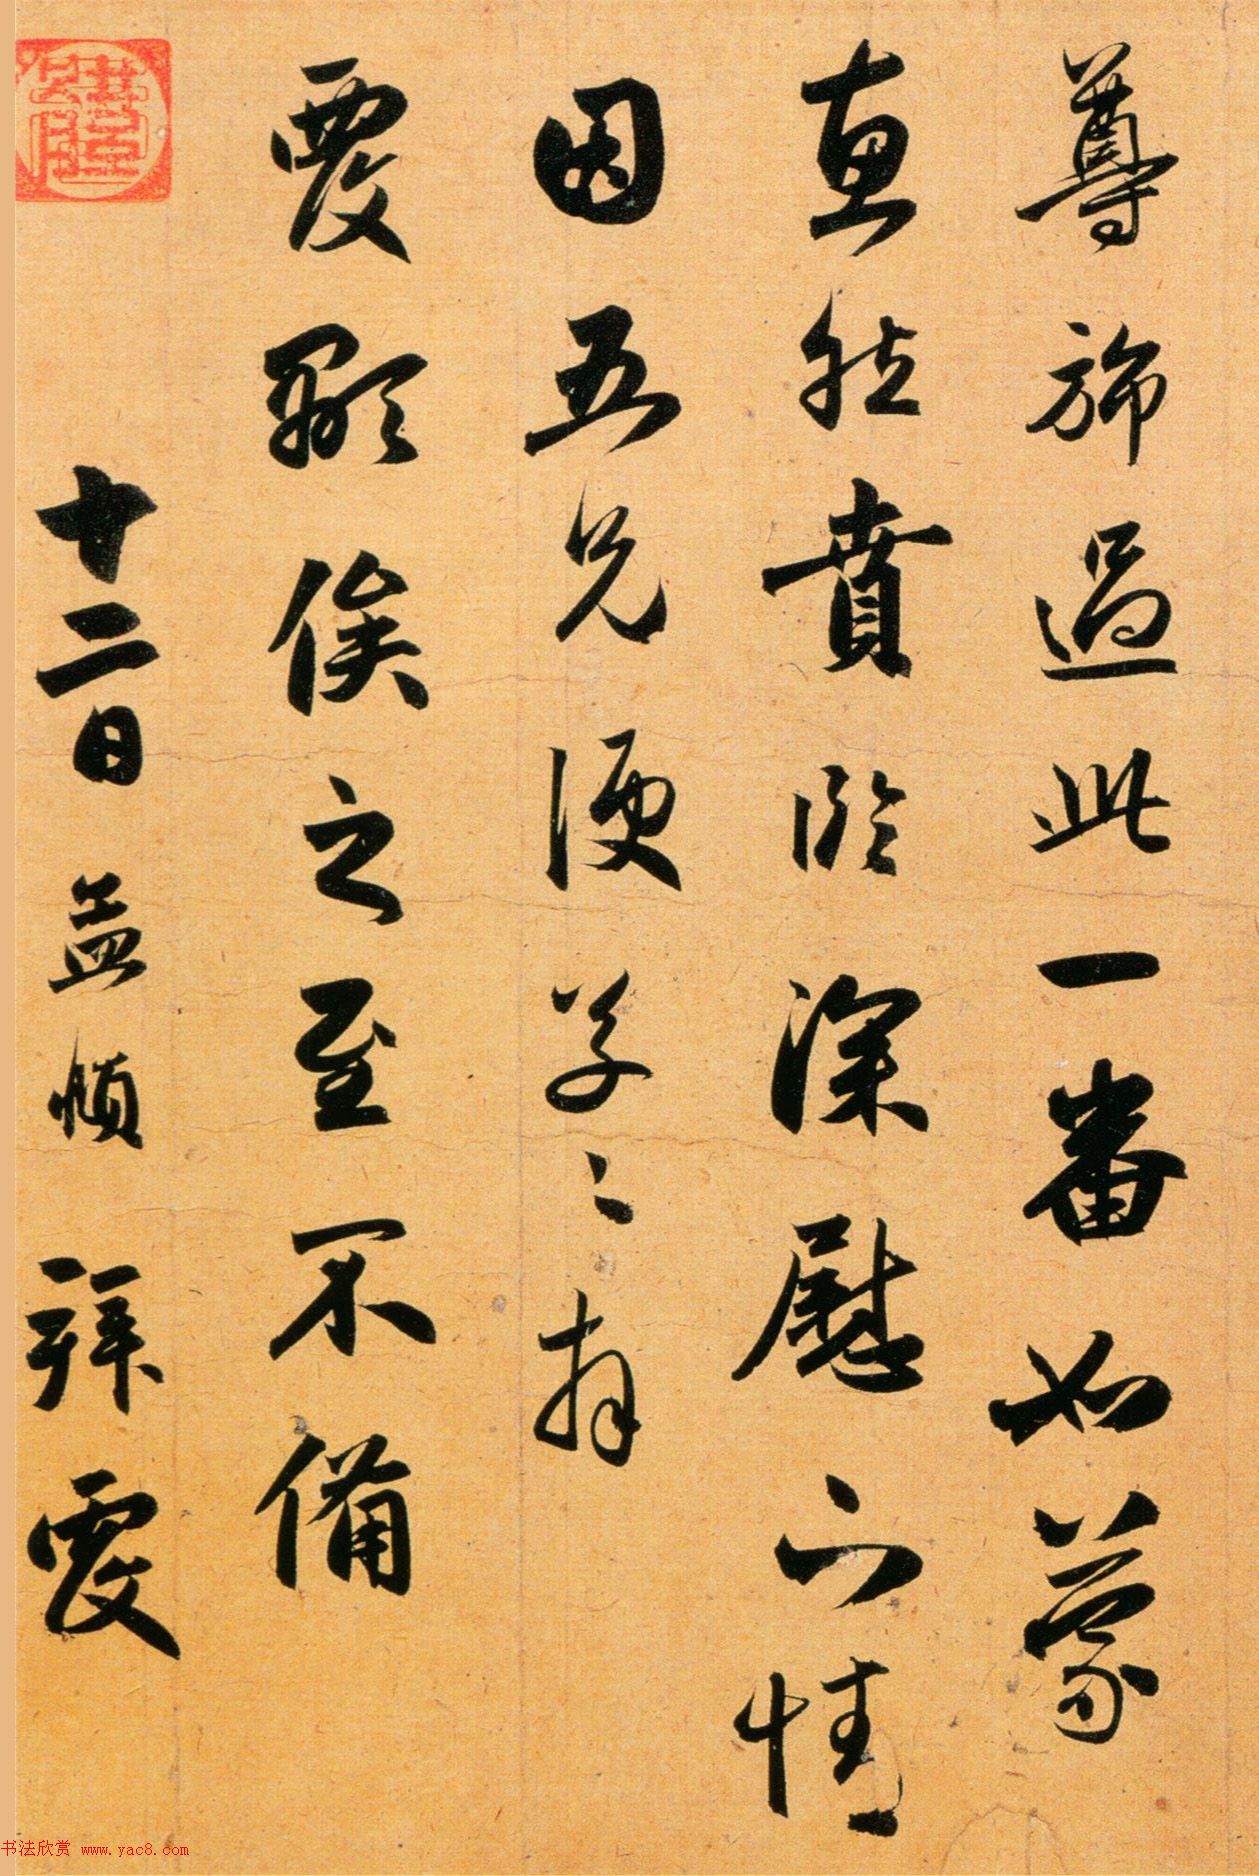 尊旆過此一番如蒙
惠然賁臨深慰下情
因五兄便草々拜
覆顒俟之至不備
十二日孟頫拜覆
书法欣赏 www.yac8.com